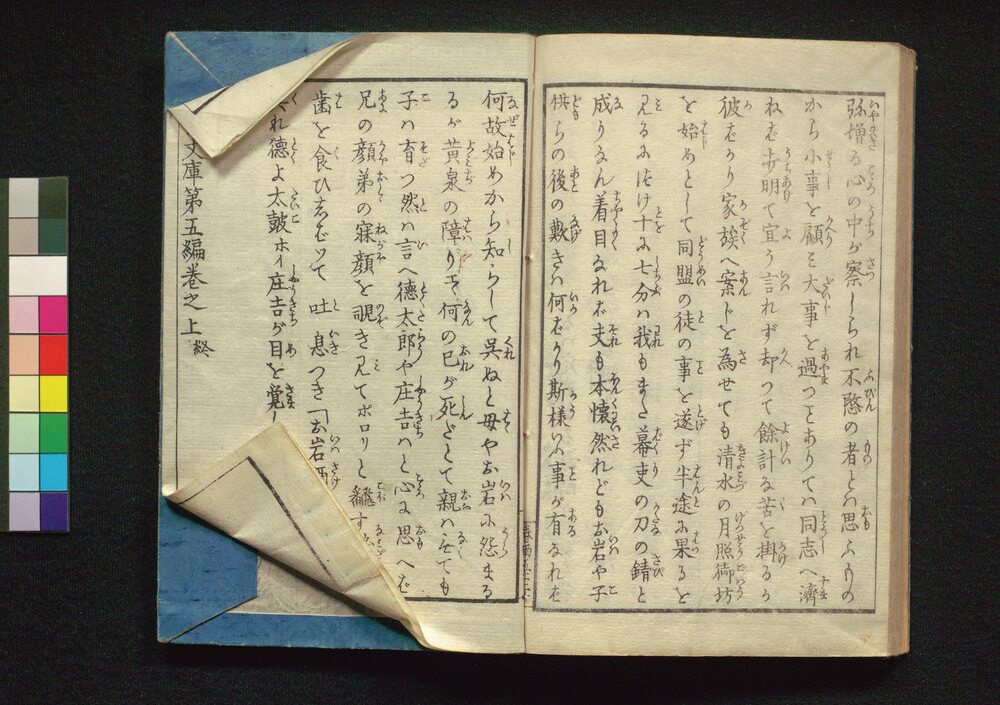 弥増る心の中が察しられ不愍の者とは思ふものの
から小事を顧ミ大事を過つとありては同志へ済
ねば歩明て宜う言れず却つて餘計な苦を掛るか
彼ばかり家族へ案じを為せても清水の月照御坊
を始めとして同盟の徒の事を遂ず半途に果るを
見るにつけ十に七分は我もまた幕吏の刀の錆と
成りなん着目なれば夫も本懐然れどもお岩や子
供らの後の歎きは何ばかり斯様いふ事が有なれば
何故始めから知らして呉ねと母やお岩に怨まる
るが黄泉の障り其何の巳が死だとて親はなくても
子ハ育つ然ハ言へ徳太郎や庄吉ハと心に思へば
兄の顔弟の寐顔を覗き見てポロリと飜す
歯を食ひしばつて吐息つき「お岩酒
れ徳よ太鼓ホイ庄吉が目を覚
文庫第五編巻之上終